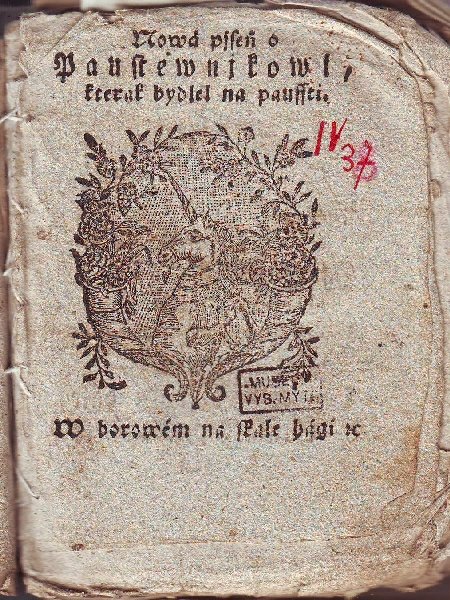 Nowá pjseň o
Paustewnjkowi,
kterak bydlel na paussti.
IV
37
MUSE
VYS. MÝT
W borowém na skale hági ꝛc